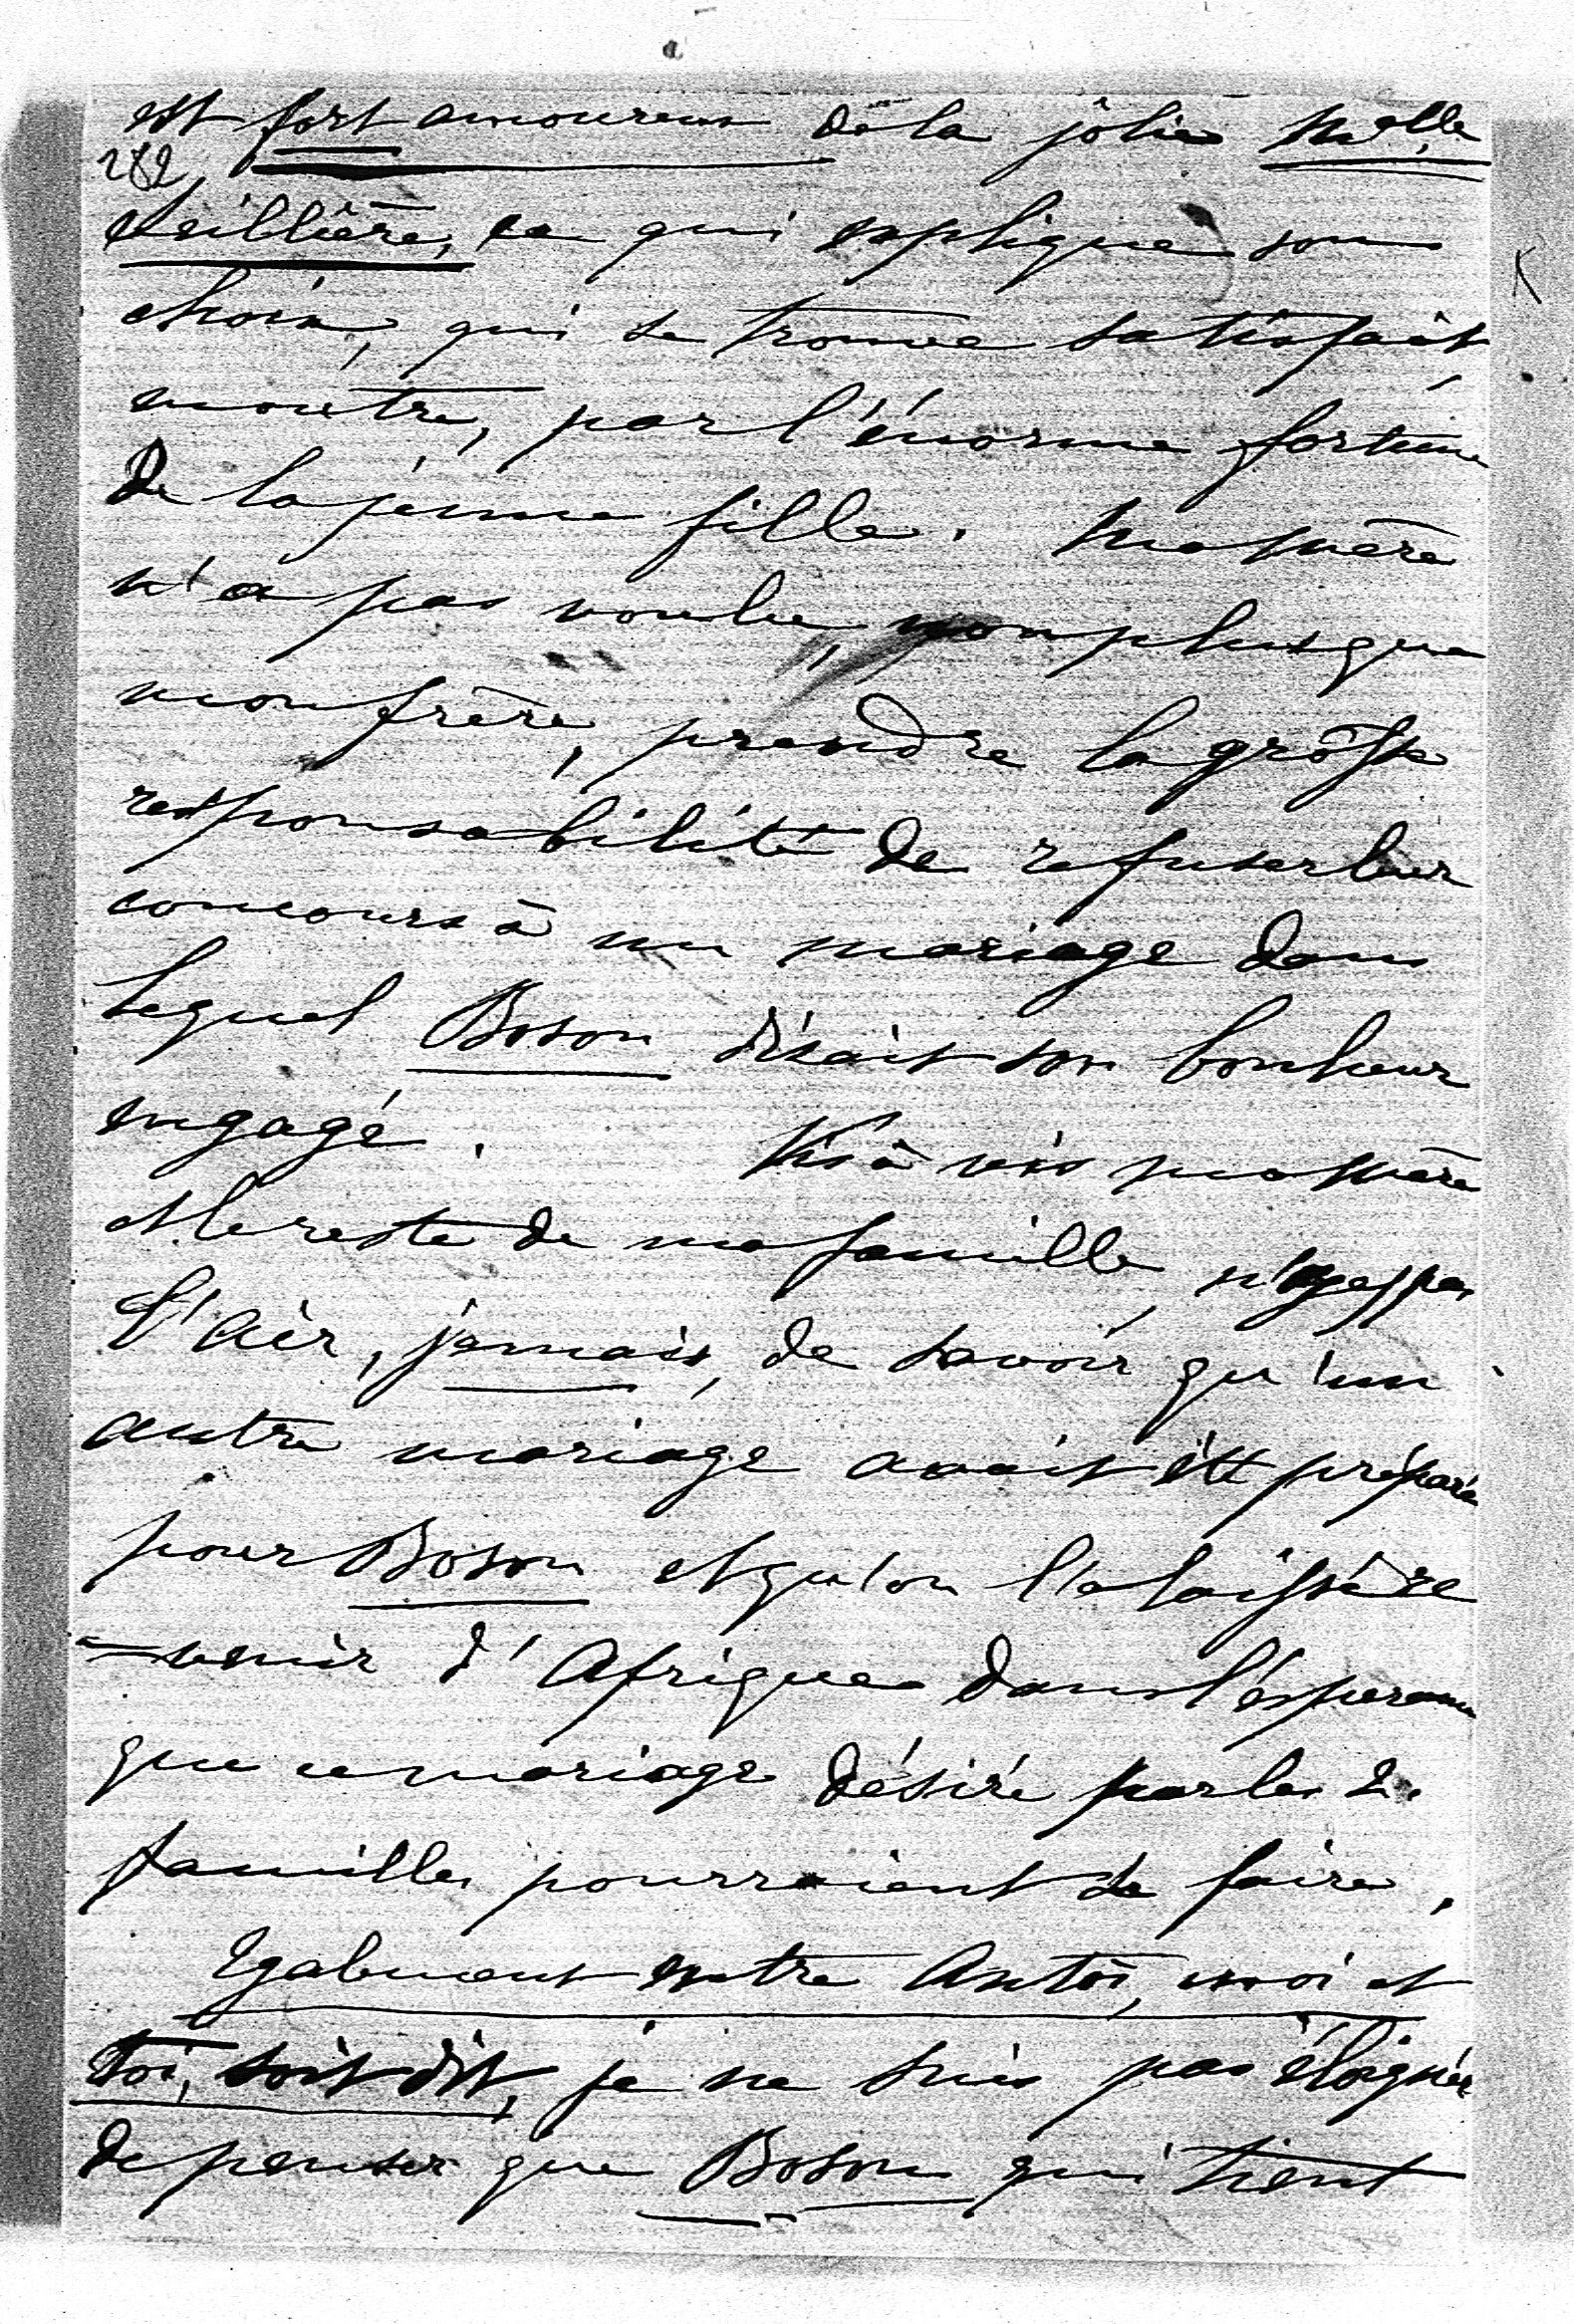 est fort amoureux de la jolie Melle
282
Seillière, ce qui explique son
choix, qui se trouve satisfait,
en outre, par l'énorme fortune
de la jeune fille. Ma mère
n'a pas voulu, non plus que
mon frère, prendre la grosse
responsabilité de refuser leur
concours à un mariage dans
lequel Boson disait son bonheur
engagé. Vis à vis ma mère
et le reste de ma famille, n'ayes pas
l'air, jamais, de savoir qu'un
autre mariage avait été préparé
pour Boson et qu'on l'a laissé re
=venir d'Afrique dans l'espérance
que ce mariage désiré par les 2.
familles pourraient se faire.
Egalement entre Antoi, moi et
toi, soit dit, je ne suis pas éloignée
de penser que Boson qui tient